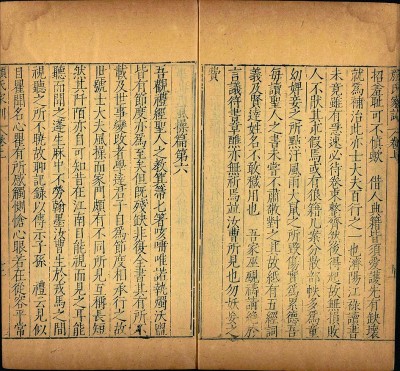 顏氏家訓 卷上
招羞恥可不慎歟 借人典籍皆須愛護先有缺壞
就為補治此亦士大夫百行之一也濟陽江祿讀書
未竟雖有急速必待卷束整齊然後得起故無損敗
人不厭其求假焉或有狼籍几案分散部帙多爲童
幼婢妾之所點汙風雨犬鼠之所毀傷實爲累德吾
每讀聖人之書未嘗不肅敬對之其故紙有五經詞
義及賢達姓名不敢穢用也 吾家巫覡禱請絕於
言議符書章醮亦無祈焉並汝曹所見也勿妖妄之
費
操篇第六
吾觀禮經聖人之教箕帚匕箸咳唾唯諾執燭沃盥
皆有節度亦為至矣但既殘缺非復全書其有所不
載及世事變改者學達君子自爲節度相承行之故
世號士大夫風操而家門頗有不同所見互稱長短
然其阡陌亦自可知昔在江南目能視而見之耳能
聽而聞之蓬生麻中不勞翰墨汝曹生於戎馬之間
視聽之所不曉故聊記錄以傳示子孫 禮云見似
目瞿聞名心瞿有所感觸惻愴心眼若在從容平常